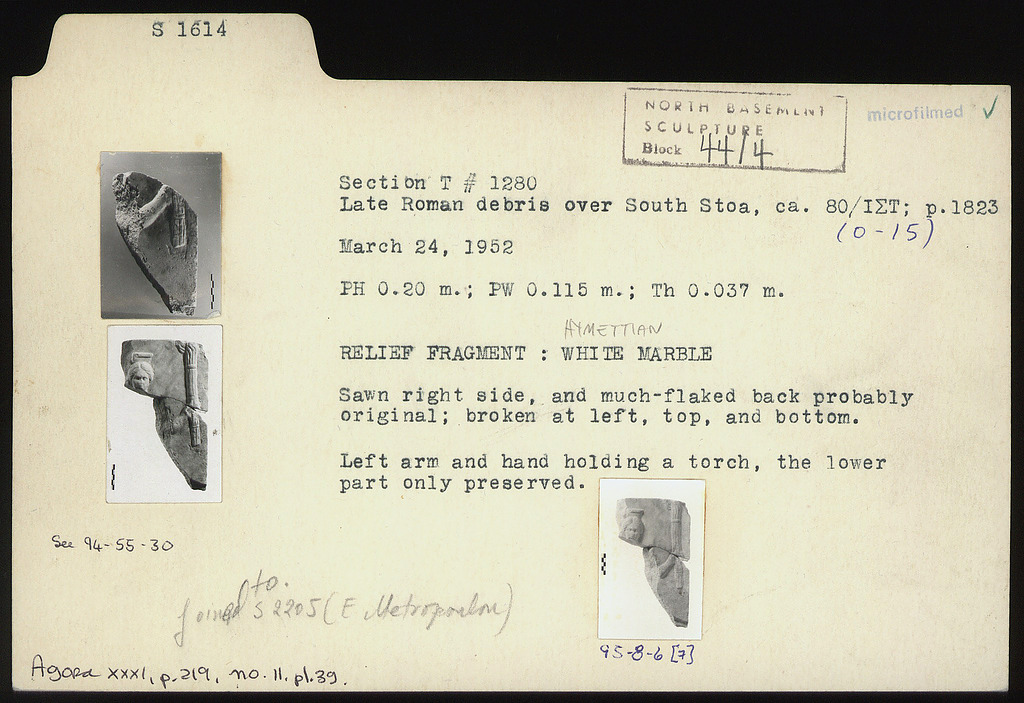 S 1614
NORTH BASEMENT
SCULPTURE
Block 44/4
microfilmed ✓
Section T # 1280
Late Roman debris over South Stoa, ca. 80/ΙΣΤ; p.1823
(0-15)
March 24, 1952
PH 0.20 m.; PW 0.115 m.; Th 0.037 m.
HYMETTIAN
RELIEF FRAGMENT : WHITE MARBLE
Sawn right side, and much-flaked back probably
original; broken at left, top, and bottom.
Left arm and hand holding a torch, the lower
part only preserved.
See 94-55-30
joined to
S 2205 (E Metropoulou)
95-8-6 [7]
Agora XXXI, p.219, no.11. pl.39.